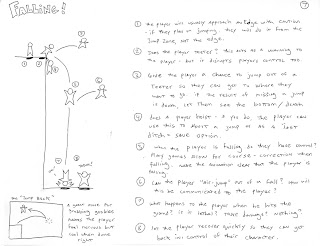 FALLING!
7
① The player will usually approach an edge with caution
- if they plan on jumping, they will do it from the
Jump zone, not the edge.
② Does the player teeter? This acts as a warning to
the player - but it disrupts player's control too.
③ Give the player a chance to jump out of a
teeter so they can get to where they
want to go. If the result of missing a jump
is death, let them see the bottom / death
④ Does a player hoist? If you do, the player can
use this to abort a jump or as a last
ditch save option.
⑤ When the player is falling do they have control?
Many games allow for course-correction when
falling. Make the animation clear that the player is
falling.
⑥ Can the player "air-jump" out of a fall? How will
this be communicated to the player?
⑦ What happens to the player when he hits the
ground? Is it lethal? Take damage? Nothing?
⑧ Let the player recover quickly so they can get
back in control of their character.
The "Jump Route"
a great move for
grabbing goodies
makes the player
feel nervous but
cool when done
right